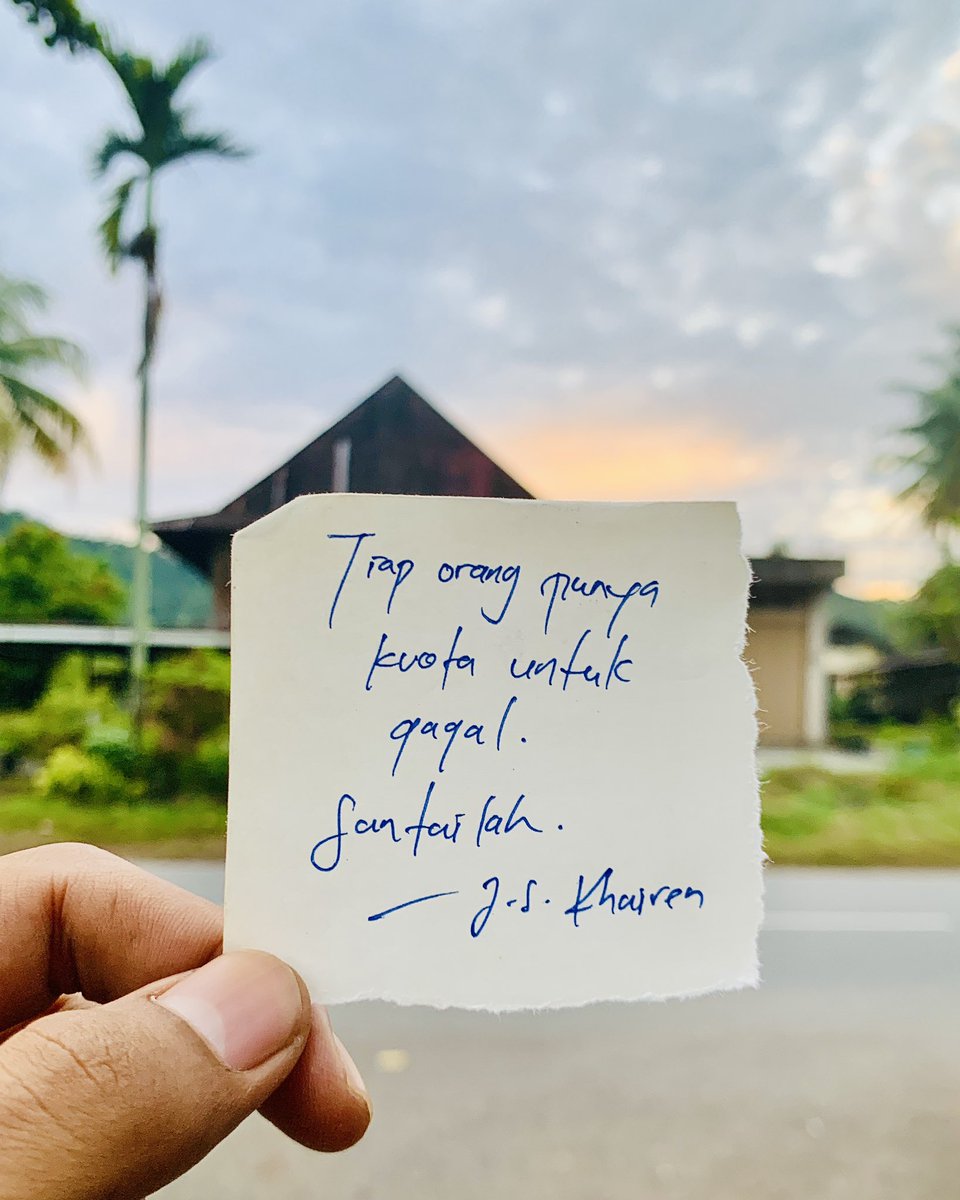 Tiap orang punya
kuota untuk
gagal.
Santailah.
— J.S. Khairen